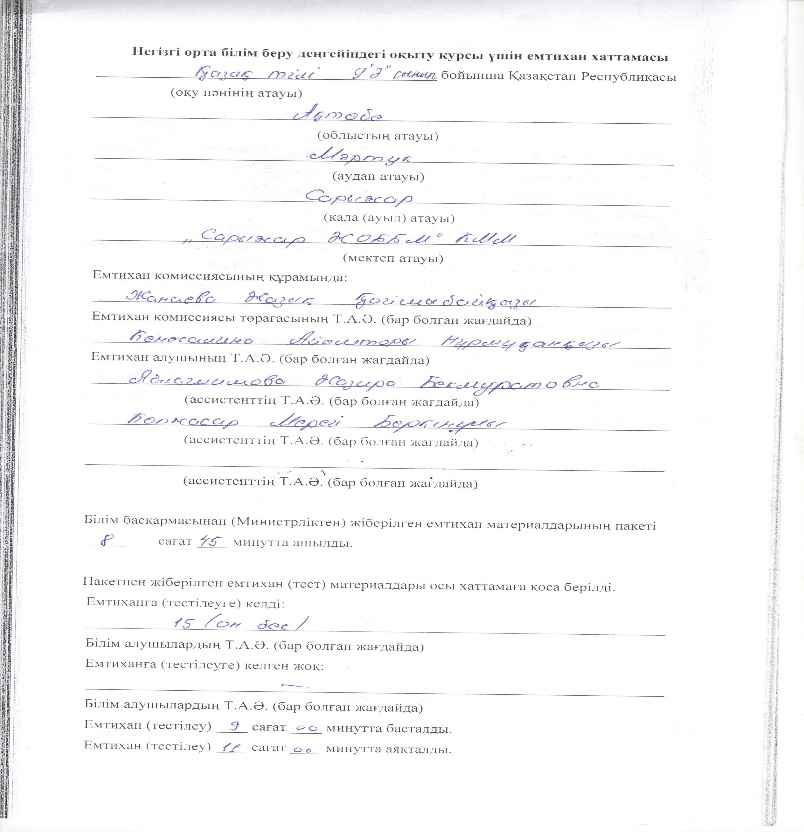 Негізгі орта білім беру деңгейіндегі оқыту курсы үшін емтихан хаттамасы
Қазақ тілі 9"Ә" сынып бойынша Қазақстан Республикасы
(оқу пәнінің атауы)
Ақтөбе
(облыстың атауы)
Мәртук
(аудан атауы)
Сарыжар
(қала (ауыл) атауы)
„Сарыжар ЖОББМ" КММ
(мектеп атауы)
Емтихан комиссиясының құрамында:
Жанаева Назик
Емтихан комиссиясы төрағасының Т.А.Ә. (бар болған жағдайда)
Емтихан алушының Т.А.Ә. (бар болған жағдайда)
Жазира Бекмуратовна
(ассистенттің Т.А.Ә. (бар болған жағдайда)
Мерей
(ассистенттің Т.А.Ә. (бар болған жағдайда)
(ассистенттің Т.А.Ә. (бар болған жағдайда)
Білім басқармасынан (Министрліктен) жіберілген емтихан материалдарының пакеті
8 сағат 45 минутта ашылды.
Пакетпен жіберілген емтихан (тест) материалдары осы хаттамаға қоса берілді.
Емтиханға (тестілеуге) келді:
15 /он бес/
Білім алушылардың Т.А.Ә. (бар болған жағдайда)
Емтиханға (тестілеуге) келген жоқ:
—
Білім алушылардың Т.А.Ә. (бар болған жағдайда)
Емтихан (тестілеу) 9 сағат 00 минутта басталды.
Емтихан (тестілеу) 11 сағат 00 минутта аяқталды.